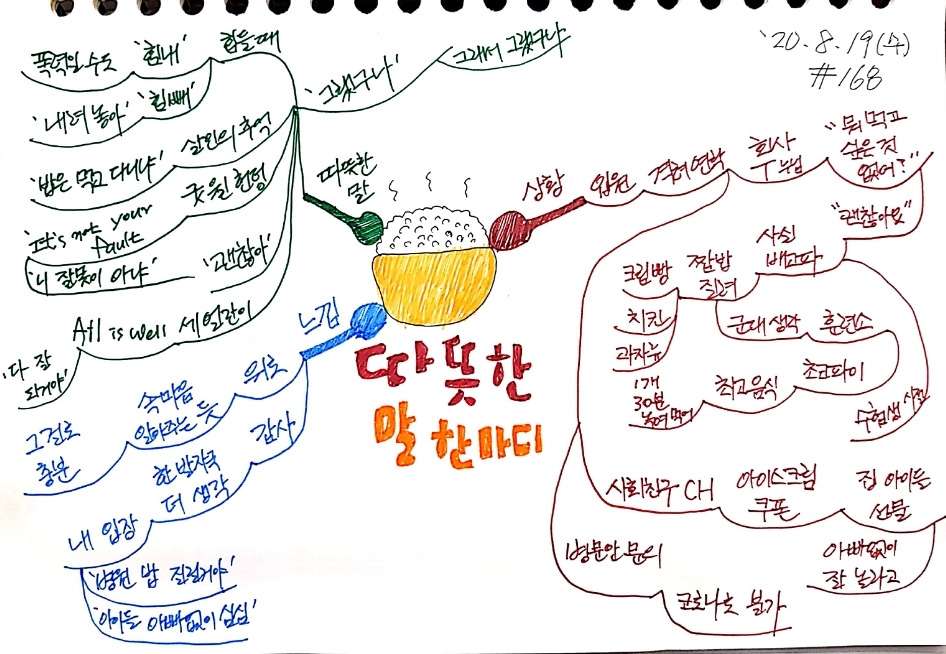 '20. 8. 19 (수)
#168
따뜻한
말 한마디
상황
입원
격려 연락
회사
T 누님
"뭐 먹고
싶은 것
없어?"
"괜찮아요"
사실
배고파
짬밥
질려
크림빵
치킨
과자류
군대 생각
훈련소
초코파이
최고 음식
1개
30분
녹여 먹어
수험생 시절
사회친구 CH
아이스크림
쿠폰
집 아이들
선물
아빠 없이
잘 놀라고
병문안 문의
코로나로 불가
느낌
위로
속마음
알아주는 듯
그걸로
충분
감사
한 발자국
더 생각
내 입장
'병원 밥 질릴거야'
'아이들 아빠 없이 심심'
따뜻한
말
'그랬구나'
그래서 그랬구나
힘들 때
'힘내'
폭력일 수도
'힘 빼'
'내려 놓아'
살인의 추억
'밥은 먹고 다니냐'
굿 윌 헌팅
'It's not your
fault'
'니 잘못이 아냐'
'괜찮아'
세 얼간이
All is well
'다 잘
될거야'